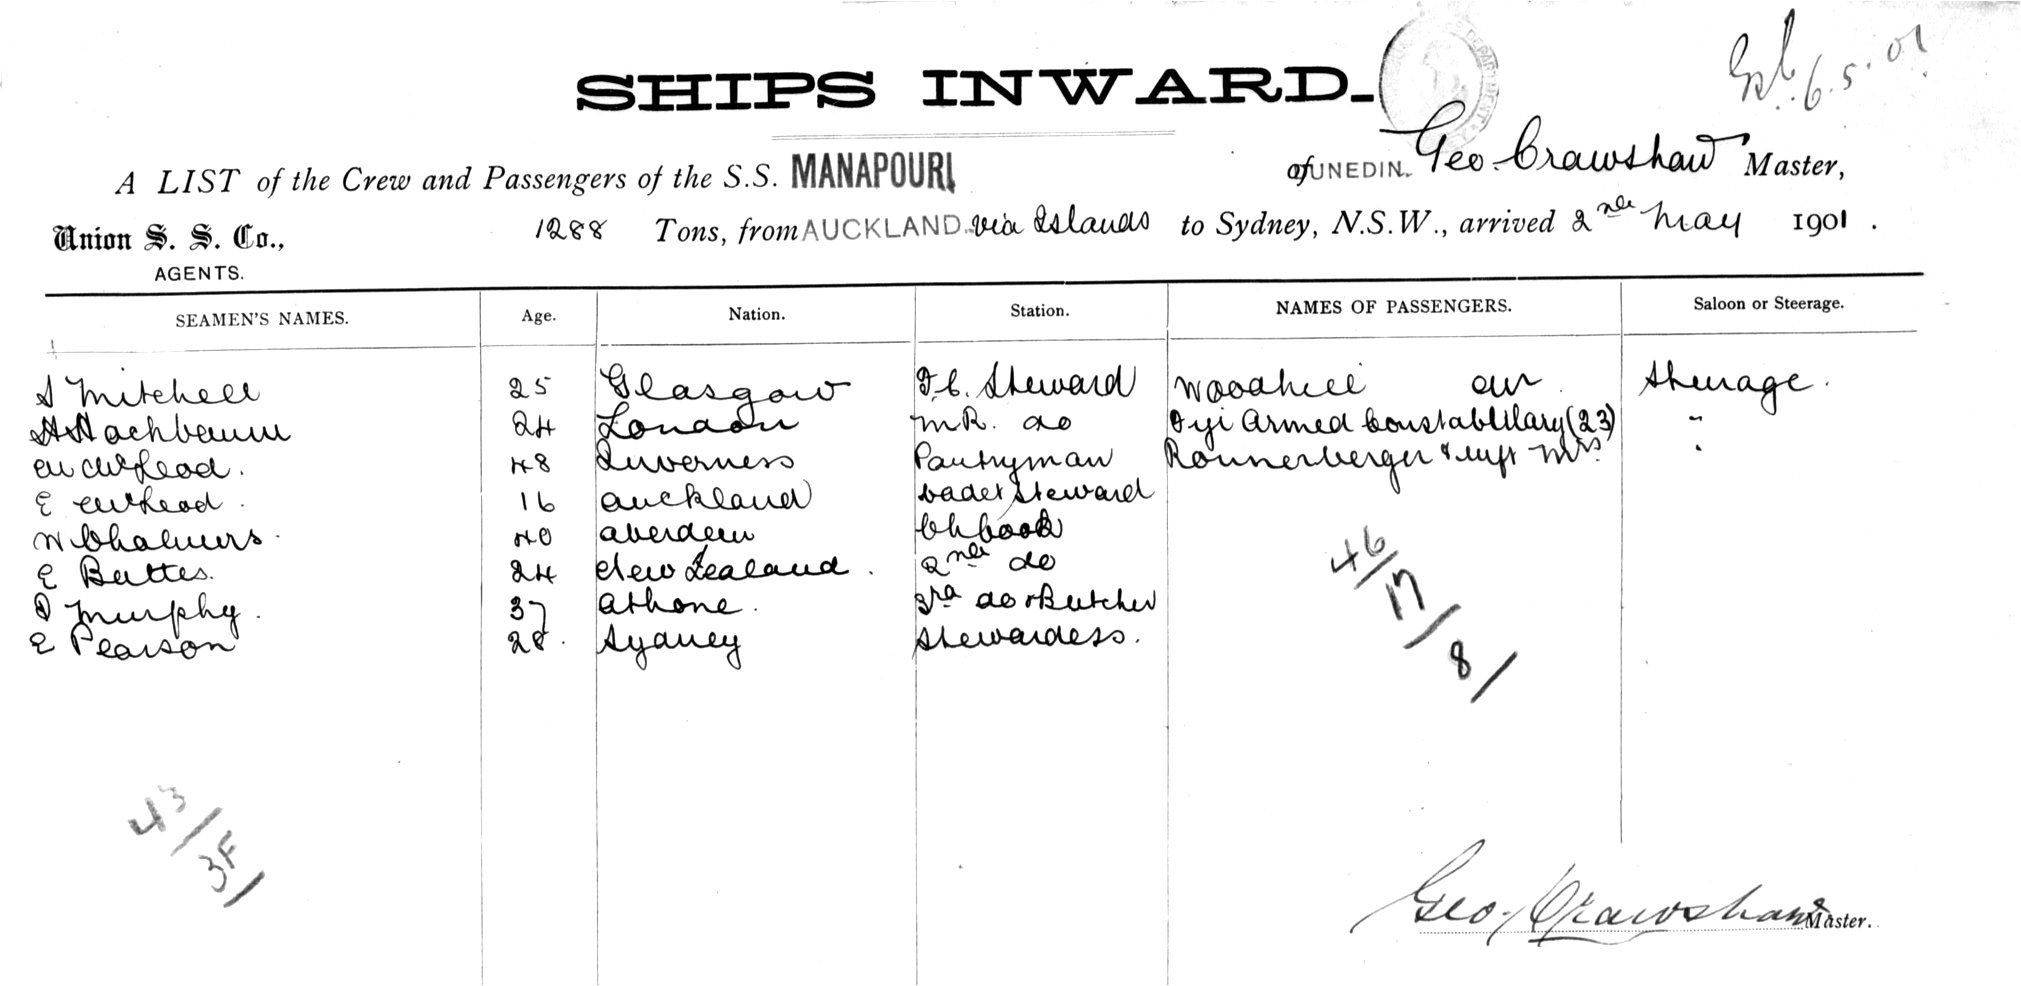 SHIPS INWARD.
6.5.01
A LIST of the Crew and Passengers of the S.S. MANAPOURI of DUNEDIN. Geo. Crawshaw Master,
Union S. S. Co., 1288 Tons, from AUCKLAND via Islands to Sydney, N.S.W., arrived 2nd May 1901.
AGENTS.
SEAMEN'S NAMES. Age. Nation. Station. NAMES OF PASSENGERS. Saloon or Steerage.
S Mitchell 25 Glasgow F.C. Steward Woodhill Mr. Steerage.
24 London M R. do Fiji Armed Constabulary (23) "
48 Inverness Pantryman Ronnerberger & Mrs. "
E 16 Auckland Cadet Steward
W Chalmers. 40 Aberdeen Ch Cook
E Battes. 24 New Zealand. 2nd do
D Murphy. 37 Athone. 3rd do & Butcher
E Pearson 28. Sydney Stewardess.
46/17/8/
43/3F/
Geo. Crawshaw Master.